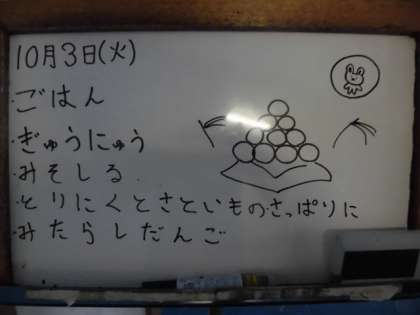 10月3日(火)
・ごはん
・ぎゅうにゅう
・みそしる
・とりにくとさといものさっぱりに
・みたらしだんご